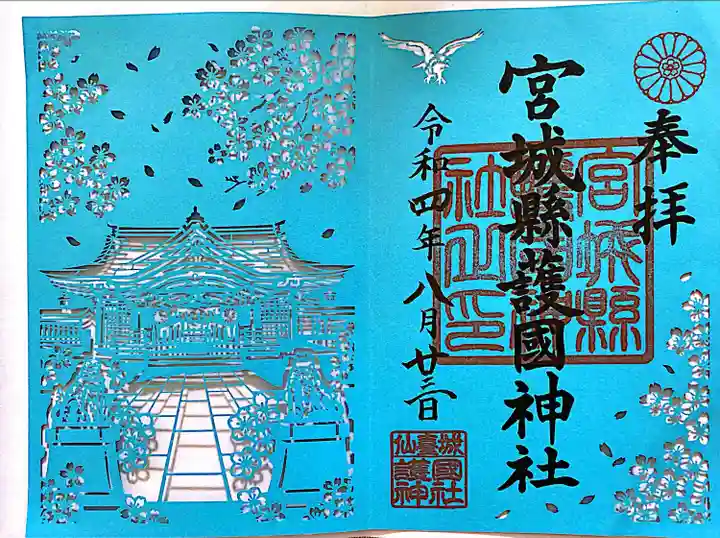 奉拝
宮城縣護國神社
令和四年八月廿三日
宮城縣
社之印
仙臺城
護國
神社